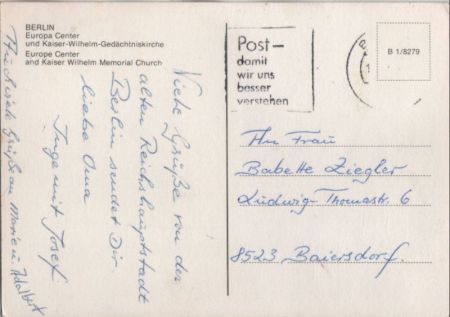 BERLIN
Europa Center
und Kaiser-Wilhelm-Gedächtniskirche
Europe Center
and Kaiser Wilhelm Memorial Church
Post-
damit
wir uns
besser
verstehen
B 1/8279
Viele Grüße von der
alten Reichshauptstadt
Berlin sendet Dir
liebe Oma
Inge mit Josef
Auch viele Grüße an Marie u. Adalbert
An Frau
Babette Ziegler
Ludwig-Thomastr. 6
8523 Baiersdorf.